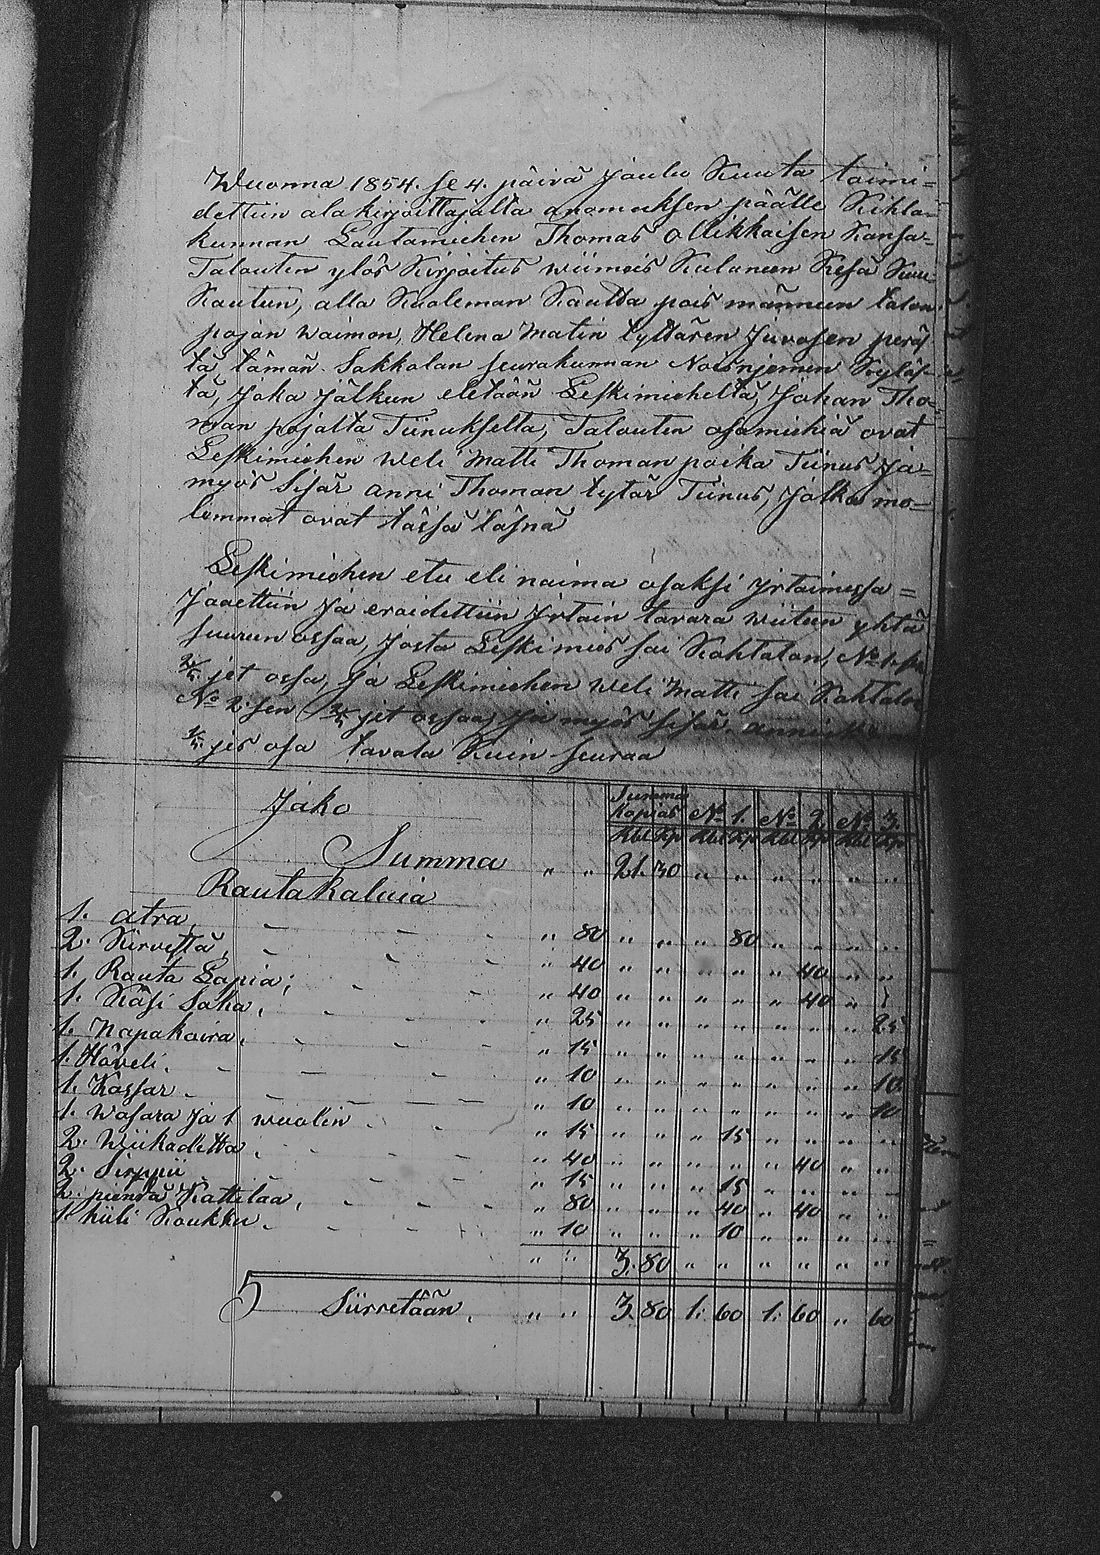 Wuonna 1854. se 4. päivä Joulu Kuuta toimi=
dettiin alakirjoittajalta anomuksen päälle Kihla=
kunnan Lautamiehen Thomas Ollikkaisen Kansa=
Talouten ylös Kirjoitus wiimeis Kuluneen Kesä Kuu
Kautun, alla Kuoleman Kautta pois männeen talon
pojan waimon, Helena Matin tyttären Juvosen perä
tä tämän Sakkolan seurakunnan Noisnjemen Kyläs
tä, Joka Jälkeen eletään Leskimieheltä, Johan Tho=
man pojalta Tiinukselta, Talouten osamiehiä ovat
Leskimiehen weli Matti Thoman poika Tiinus Ja=
myös Sisär anni Thoman tytär Tiinus, Jotka mo=
lemmat ovat tässä läsnä
Leskimiehen etu eli naima osaksi Irtaimessa=
Jaaettiin Ja eroidettiin Irtain tavara wiiteen yhtä
suureen ossaa, Josta Leskimies sai Kahtalon, No 1.
2/5 jet ossa, Ja Leskimiehen weli Matti sai Kahtalon
No 2. sen 2/5 jet ossaa, Ja myös sisär anni
1/5 jes osa tavata Kuin seuraa
Jako Summa Kopias No 1. No 2. No 3.
Rbl Kp Rbl Kp Rbl Kp Rbl Kp
Summa " " 21. 30 " " " " " "
Rauta Kaluia
1. atra, " 80 " " " 80 " " " "
2. Kirvettä, " 40 " " " " " 40 " "
1. Rauta Lapia; " 40 " " " " " 40 "
1. Käsi Saha, " 25 " " " " " " " 25
1. Napakaira, " 15 " " " " " " " 15
1. Höveli. " 10 " " " " " " " 10
1. Kassar " 10 " " " " " " " 10
1. Wasara Ja 1 wuolin " 15 " " " 15 " " " "
2. Wiikadetta " 40 " " " " " 40 " "
2. Sirppii " 15 " " " 15 " " " "
2. pientä Kattilaa, " 80 " " " 40 " 40 " "
1. hiili Koukku " 10 " " " 10 " " " "
" " 3. 80 " " " " " "
Siirretään, " " 3. 80 1. 60 1. 60 " 60